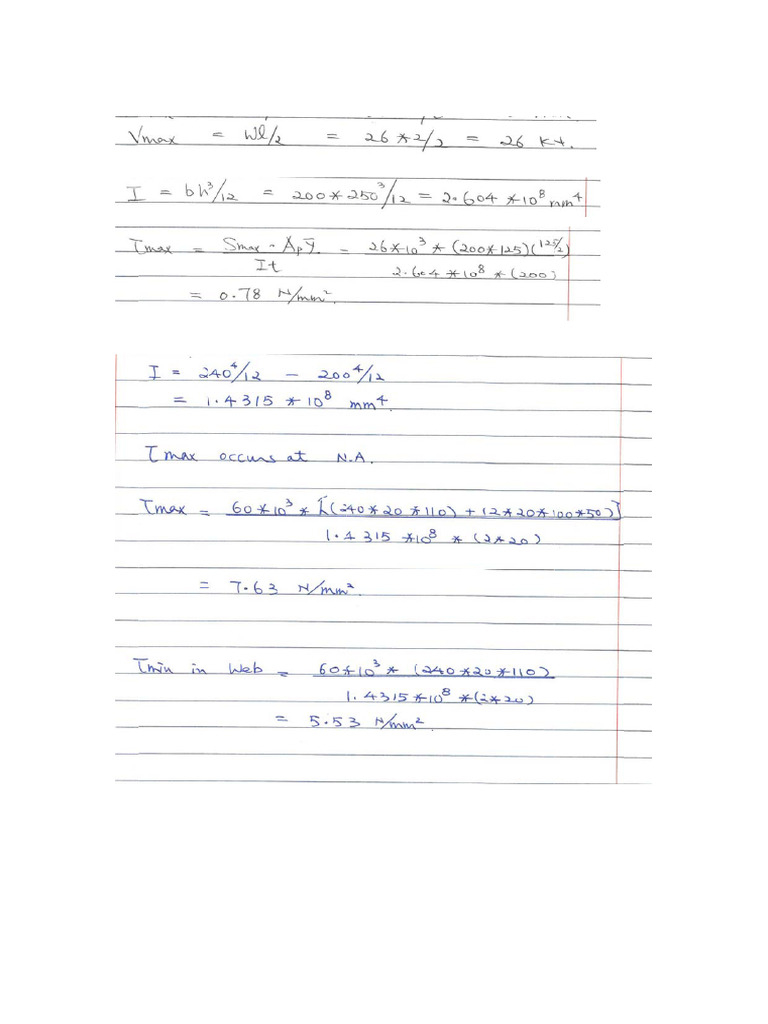 Vmax = Wl/2 = 26 * 2/2 = 26 KN.
I = bh³/12 = 200*250³/12 = 2.604 *10⁸ mm⁴
τmax = Smax · Apȳ / It = 26*10³ * (200*125)(125/2) / 2.604 *10⁸ * (200)
= 0.78 N/mm².
I = 240⁴/12 – 200⁴/12
= 1.4315 *10⁸ mm⁴.
τmax occurs at N.A.
τmax = 60*10³ * [(240*20*110) + (2*20*100*50)] / 1.4315 *10⁸ * (2*20)
= 7.63 N/mm².
τmin in Web = 60*10³ * (240*20*110) / 1.4315*10⁸ * (2*20)
= 5.53 N/mm².